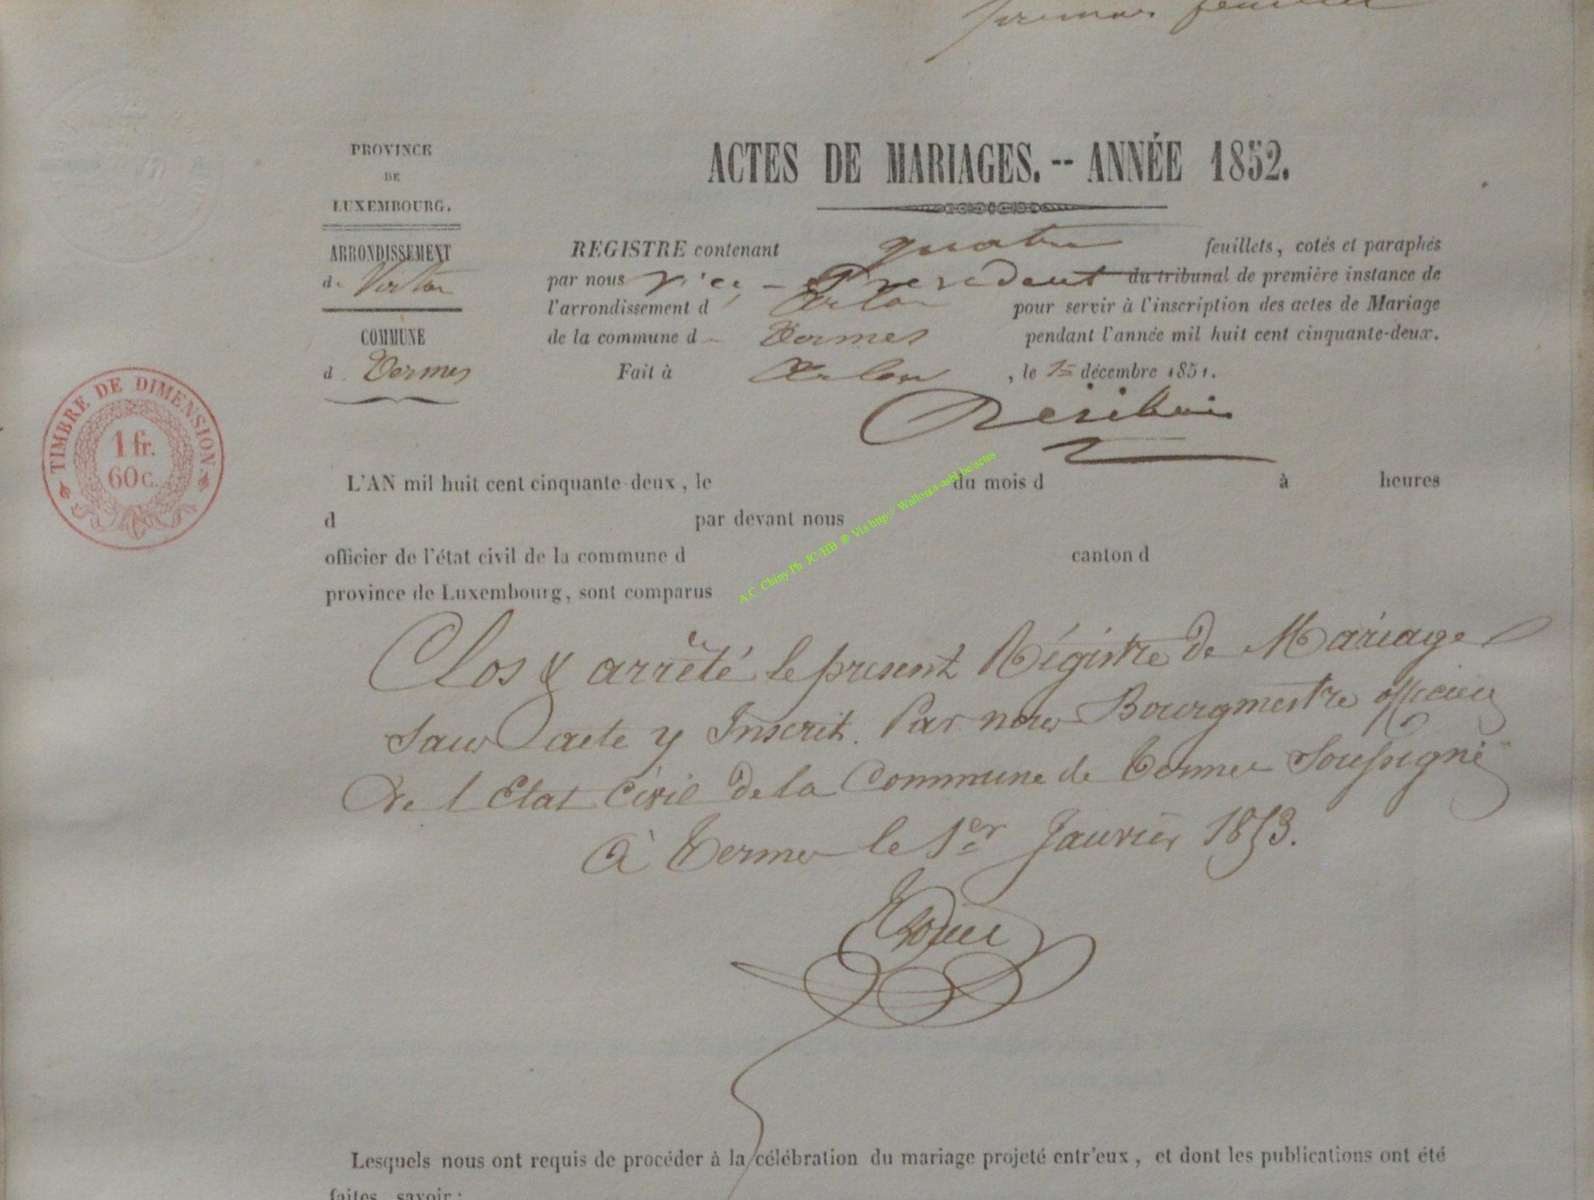 premier feuillet
PROVINCE
DE
LUXEMBOURG.
ARRONDISSEMENT
de Virton
COMMUNE
d Termes
ACTES DE MARIAGES. -- ANNÉE 1852.
REGISTRE contenant quatre feuillets, cotés et paraphés
par nous vice-Président du tribunal de première instance de
l'arrondissement d'Arlon pour servir à l'inscription des actes de Mariage
de la commune d Termes pendant l'année mil huit cent cinquante-deux.
Fait à Arlon, le décembre 1851.
TIMBRE DE DIMENSION
1 fr.
60 c.
L'AN mil huit cent cinquante-deux, le du mois d à heures
d par devant nous
officier de l'état civil de la commune d canton d
province de Luxembourg, sont comparus
A.C. Chiny Ph JC-HB ® Via http:// Wallonia-asbl.be/actus
Clos & arrêté le présent Régistre de Mariage
Sans acte y Inscrit. Par nous Bourgmestre officier
De l Etat Civil De la Commune de Termes Soussigné
à Termes le 1er Janvier 1853.
Lesquels nous ont requis de procéder à la célébration du mariage projeté entr'eux, et dont les publications ont été
faites, savoir :